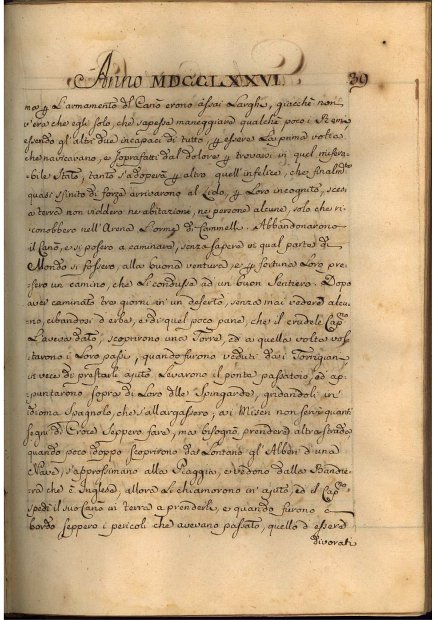 Anno MDCCLXXVI. 39
ma p l'armamento del Canò erono assai larghi, giacchè non
v'era che egli solo, che sapesse maneggiare qualche poco i Remi
essendo gl'altri due incapaci di tutto, p essere la prima volta
che navicavano, e soprafatti dal dolore p trovarsi in quel misera-
bile stato, tanto s'adoperà p altro quell'infelice, che finalmte
quasi sfinito di forze arrivarono al Lido, p loro incognito, scesi
a terra non viddero ne abitazione, ne persone alcune, solo che ri-
conobbero nell'Arena l'orme di Cammello. Abbandonarono
il Canò, e si posero a caminare, senza sapere in qual parte di
Mondo si fossero, alla buona ventura, e p fortuna loro pre-
sero un camino, che li condusse ad un buon sentiero. Dopo
aver caminato tre giorni in un deserto, senza mai vedere alcu-
no, cibandosi d'erba, e di quel poco pane, che il crudele Capno
l'aveva dato, scoprirono una Torre, ed a quella volta vol-
tarono i loro passi, quando furono veduti dai Torrigiani
in vece di prestarli ajuto levarono il ponte passatoio, ed ap-
puntarono sopra di loro delle Spingarde, gridandoli in
idioma Spagnolo, che s'allargassero; ai Miseri non servì quanti
segni di Croce seppero fare, ma bisognò prendere altra strada
quando poco doppo scoprirono da lontano gl'Alberi d'una
Nave, s'approssimano alla Piaggia, e vedono dalla Bandie-
ra che è Inglese, allora li chiamorono in ajuto, ed il Capno
spedì il suo Canò in terra a prenderli, e quando furono a
bordo seppero i pericoli che avevano passato, quello d'essere
divorati